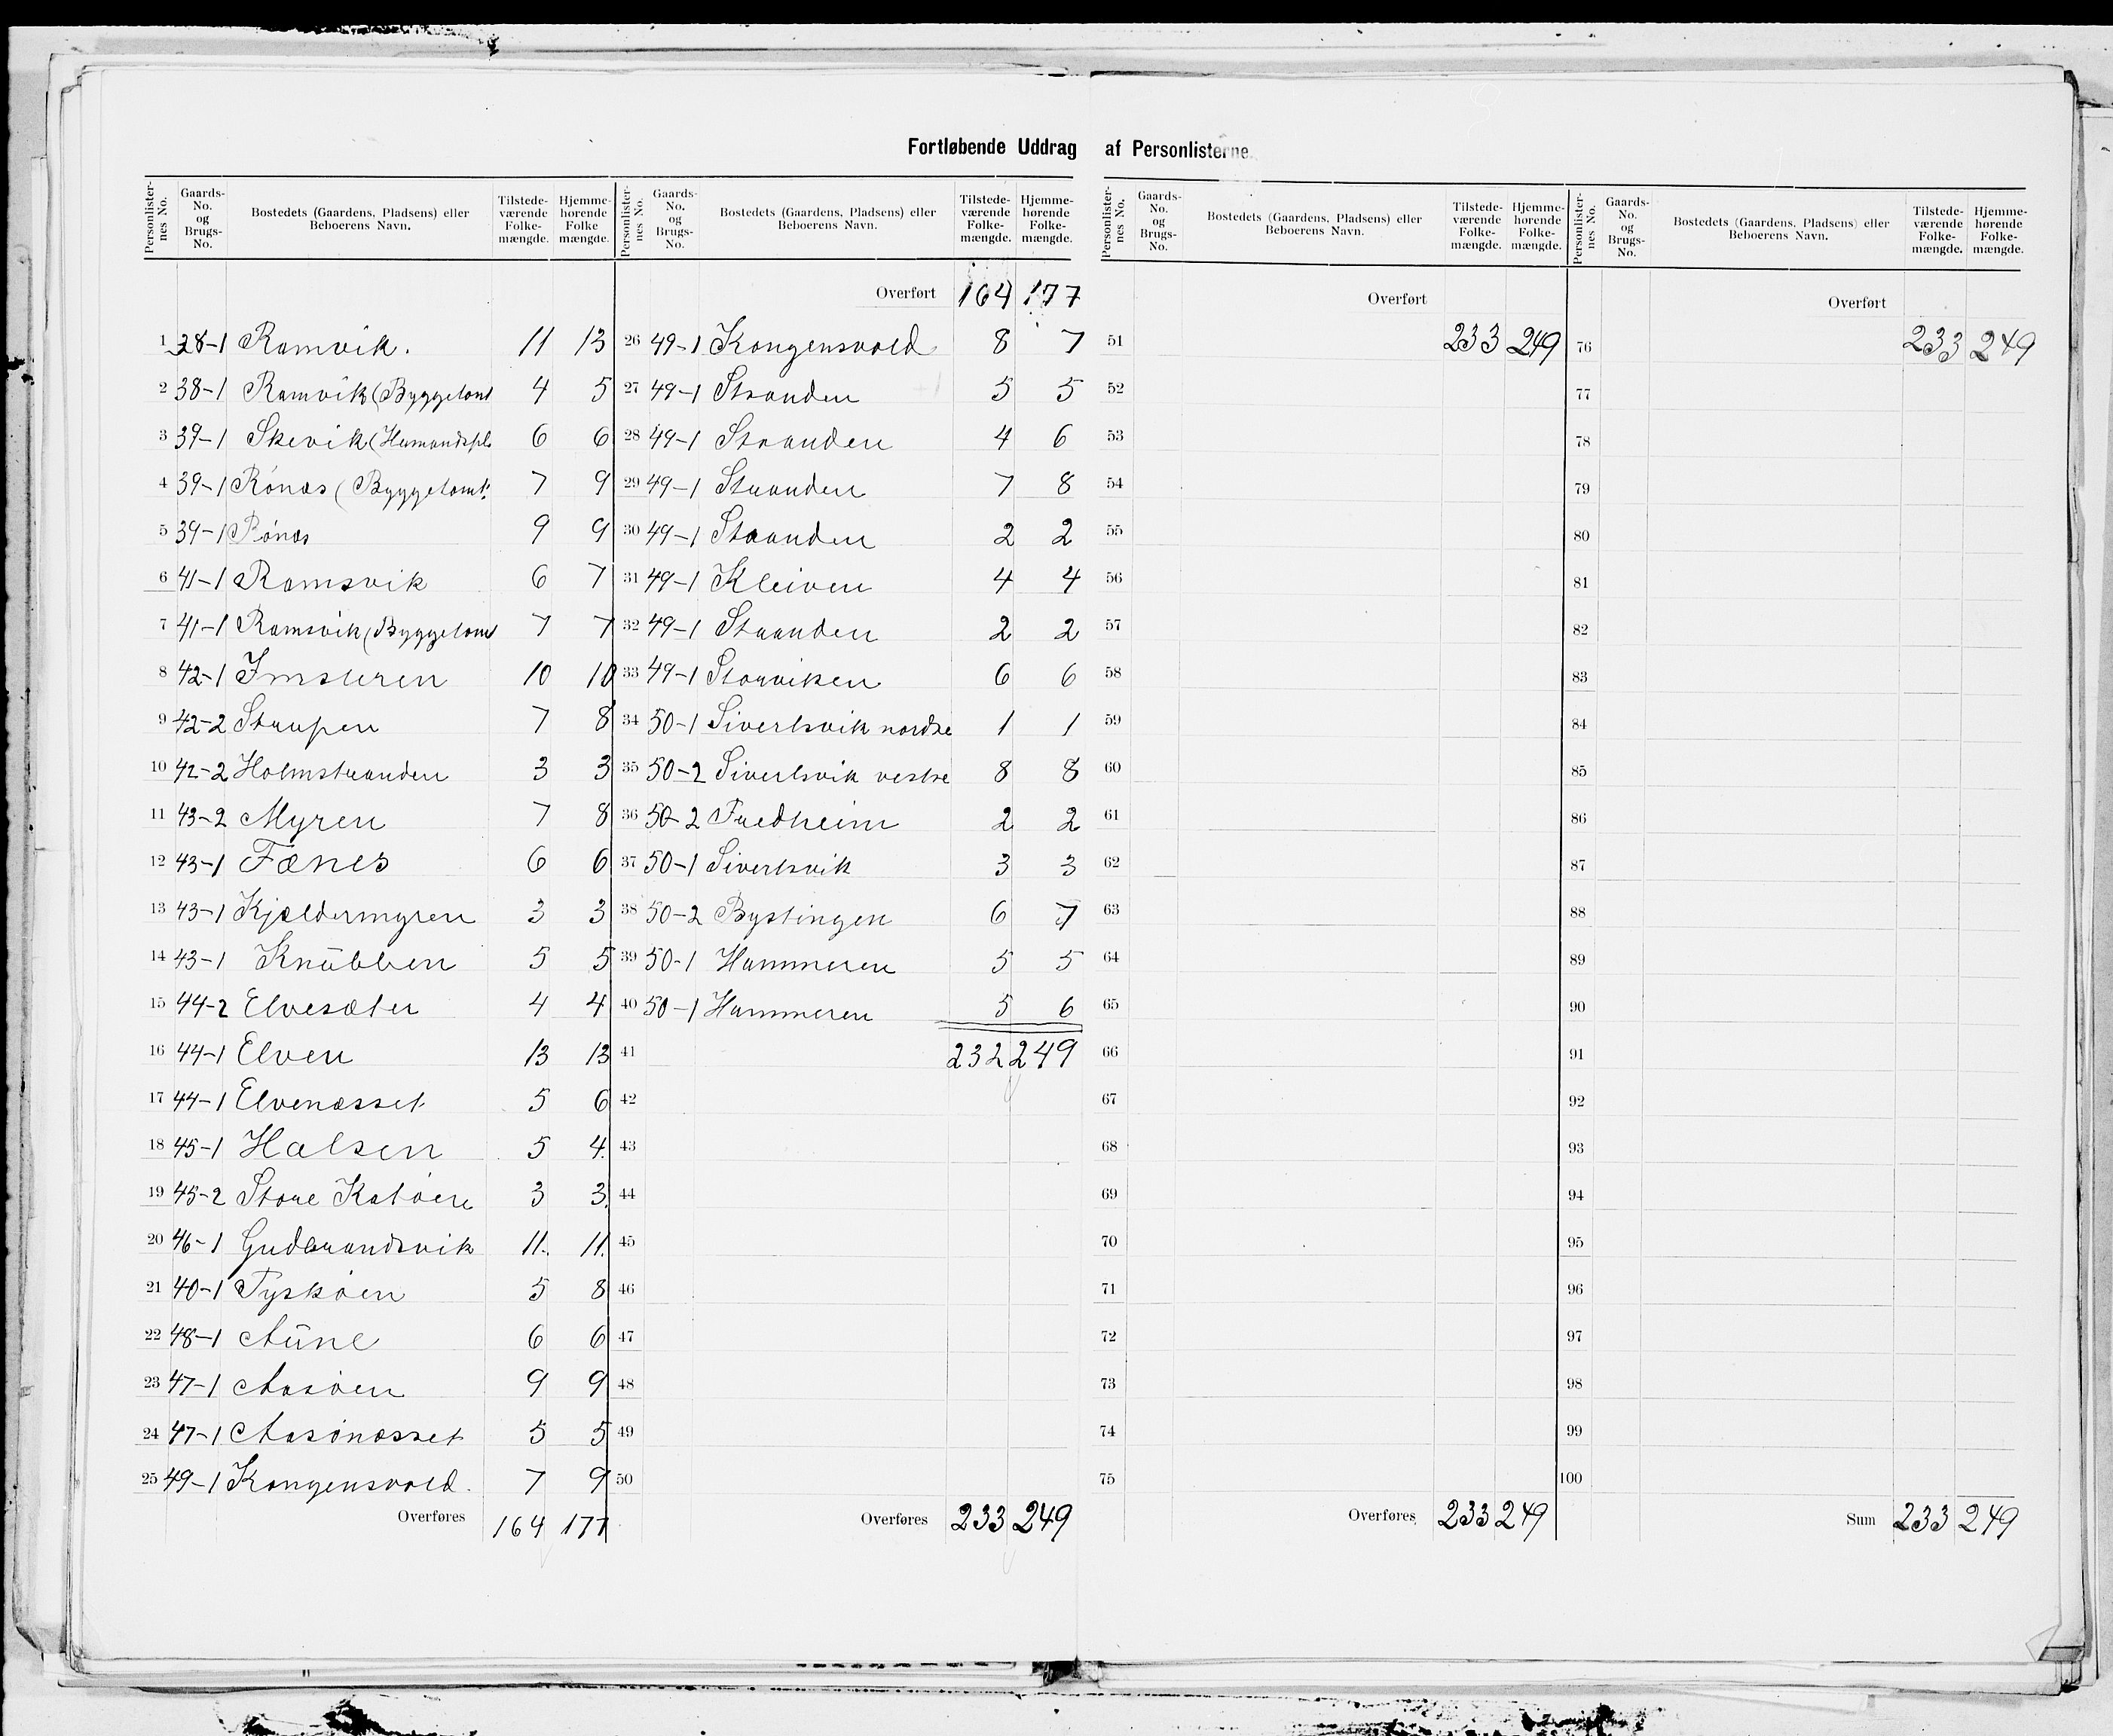 Fortløbende Uddrag af Personlisterne.
Personlisternes No. Gaards-No. og Brugs-No. Bostedets (Gaardens, Pladsens) eller Beboerens Navn. Tilstedeværende Folkemængde. Hjemmehørende Folkemængde.
1 38-1 Ramvik. 11 13
2 38-1 Ramvik (Byggetomt 4 5
3 39-1 Skevik (Husmandspls 6 6
4 39-1 Rønæs (Byggetomt. 7 9
5 39-1 Rønæs 9 9
6 41-1 Ramsvik 6 7
7 41-1 Ramsvik (Byggetomt 7 7
8 42-1 Imsteren 10 10
9 42-2 Staupen 7 8
10 42-2 Holmstranden 3 3
11 43-2 Myren 7 8
12 43-1 Fænes 6 6
13 43-1 Kjældermyren 3 3
14 43-1 Knubben 5 5
15 44-2 Elvesæter 4 4
16 44-1 Elven 13 13
17 44-1 Elvenæsset 5 6
18 45-1 Halsen 5 4
19 45-2 Store Katøen 3 3
20 46-1 Gudbrandsvik 11. 11
21 40-1 Tyskøen 5 8
22 48-1 Aune 6 6
23 47-1 Aasøen 9 9
24 47-1 Aasønæsset 5 5
25 49-1 Kongensvold. 7 9
Overføres 164 177
Personlisternes No. Gaards-No. og Brugs-No. Bostedets (Gaardens, Pladsens) eller Beboerens Navn. Tilstedeværende Folkemængde. Hjemmehørende Folkemængde.
Overført 164 177
26 49-1 Kongensvold 8 7
27 49-1 Stranden 5 5
28 49-1 Stranden 4 6
29 49-1 Stranden 7 8
30 49-1 Stranden 2 2
31 49-1 Kleiven 4 4
32 49-1 Stranden 2 2
33 49-1 Storviken 6 6
34 50-1 Sivertsvik nordre 1 1
35 50-2 Sivertsvik vestre 8 8
36 50-2 Fredheim 2 2
37 50-1 Sivertsvik 3 3
38 50-2 Bystingen 6 7
39 50-1 Hammeren 5 5
40 50-1 Hammeren 5 6
41 232 249
42
43
44
45
46
47
48
49
50
Overføres 233 249
Personlisternes No. Gaards-No. og Brugs-No. Bostedets (Gaardens, Pladsens) eller Beboerens Navn. Tilstedeværende Folkemængde. Hjemmehørende Folkemængde.
Overført
51 233 249
52
53
54
55
56
57
58
59
60
61
62
63
64
65
66
67
68
69
70
71
72
73
74
75
Overføres 233 249
Personlisternes No. Gaards-No. og Brugs-No. Bostedets (Gaardens, Pladsens) eller Beboerens Navn. Tilstedeværende Folkemængde. Hjemmehørende Folkemængde.
Overført
76 233 249
77
78
79
80
81
82
83
84
85
86
87
88
89
90
91
92
93
94
95
96
97
98
99
100
Sum 233 249